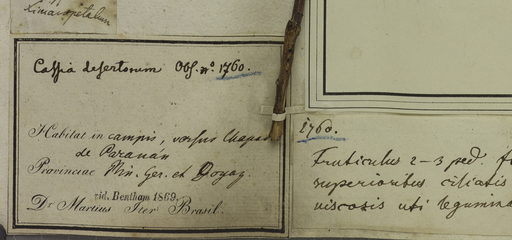 Cassia desertorum Obs. nº 1760.
Habitat in campis, versus Chapad
de Paranán
Provinciae Min. Ger. et Goyaz.
vid. Bentham 1869.
Dr Martius Iter Brasil.
1760.
Fruticulus 2–3 ped.
superioribus ciliatis
viscosis uti legumina